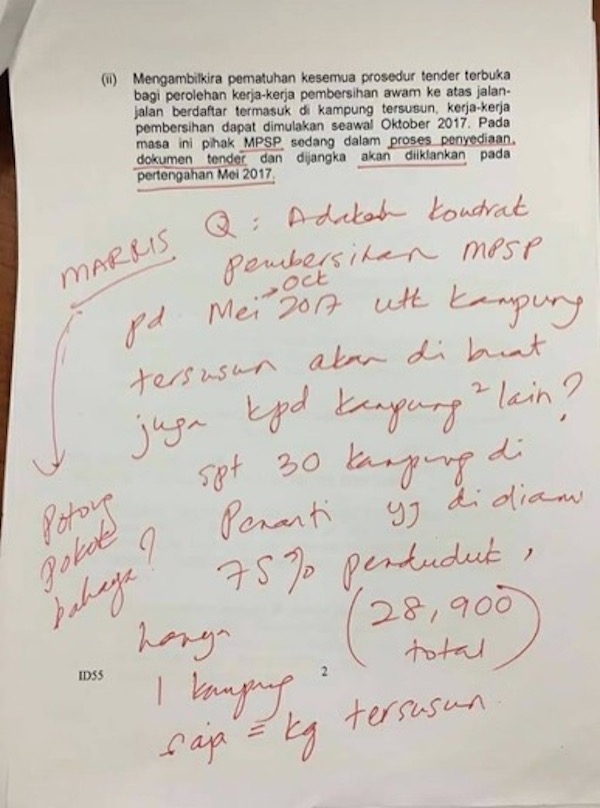 (ii) Mengambilkira pematuhan kesemua prosedur tender terbuka
bagi perolehan kerja-kerja pembersihan awam ke atas jalan-
jalan berdaftar termasuk di kampung tersusun, kerja-kerja
pembersihan dapat dimulakan seawal Oktober 2017. Pada
masa ini pihak MPSP sedang dalam proses penyediaan
dokumen tender dan dijangka akan diiklankan pada
pertengahan Mei 2017.
MARRIS
Q: Adakah kontrat
pembersihan MPSP
→ Oct
pd Mei 2017 utk kampung
tersusun akan di buat
juga kpd kampung² lain?
spt 30 kampung di
Penanti yg di diami
75% penduduk,
(28,900
total)
hanya
1 kampung
saja = kg tersusun
Potong
pokok
bahaya?
ID55
2